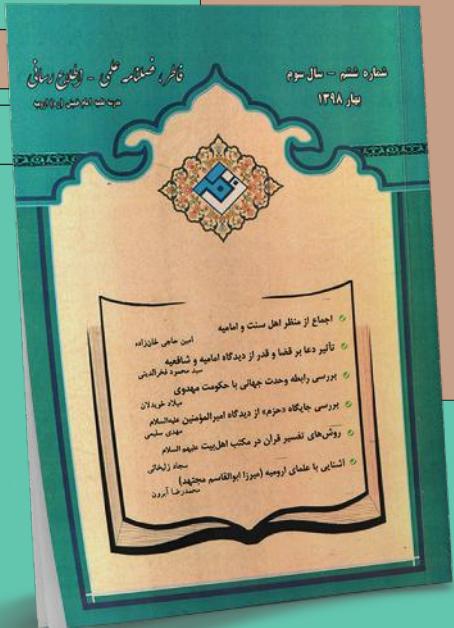 شماره ششم - سال سوم
بهار ۱۳۹۸
فاطر، فصلنامه علمی - اطلاع رسانی
مدرسه علمیه امام خمینی (ره) ارومیه
اجماع از منظر اهل سنت و امامیه
امین حاجی خان‌زاده
تأثیر دعا بر قضا و قدر از دیدگاه امامیه و شافعیه
سید محمود فخرالدینی
بررسی رابطه وحدت جهانی با حکومت مهدوی
میلاد خویدلان
بررسی جایگاه «حزم» از دیدگاه امیرالمؤمنین علیه‌السلام
مهدی سلیمی
روش‌های تفسیر قرآن در مکتب اهل‌بیت علیهم السلام
سجاد زلیخائی
آشنایی با علمای ارومیه (میرزا ابوالقاسم مجتهد)
محمدرضا آبرون